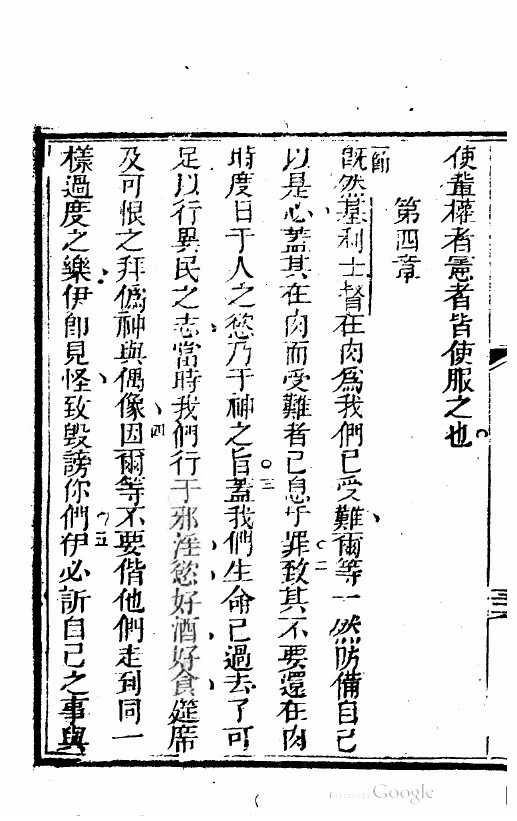 使輩權者憲者皆使服之也
第四章
節
既然基利士督在肉為我們已受難爾等一然防備自己
以是心蓋其在肉而受難者已息乎罪致其不要還在肉二
時度日于人之慾乃于神之旨蓋我們生命已過去了可三
足以行異民之志當時我們行于邪淫慾好酒好食筵席
及可恨之拜偽神與偶像因爾等不要偕他們走到同一四
樣過度之樂伊即見怪致毀謗你們伊必訴自己之事與五
Digitized by Google